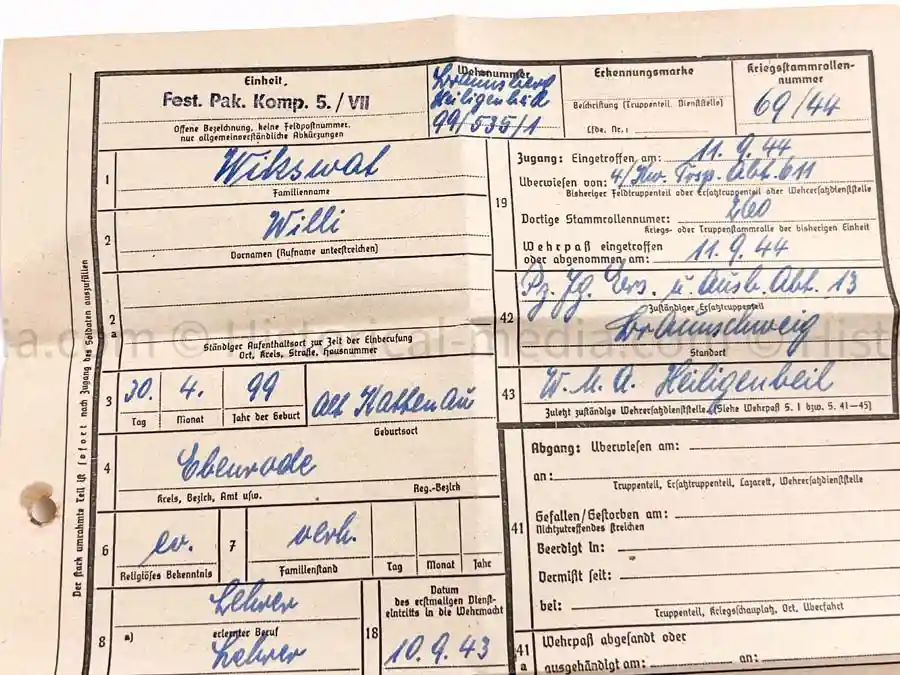 Einheit.
Fest. Pak. Komp. 5./VII
Offene Bezeichnung, keine Feldpostnummer.
nur allgemeinverständliche Abkürzungen
Wehrnummer
Braunsberg
Heiligenbeil
99/535/1
Erkennungsmarke
Beschriftung (Truppenteil, Dienststelle)
Lfde. Nr.:
Kriegsstammrollen-
nummer
69/44
1
Wikswat
Familienname
2
Willi
Vornamen (Rufname unterstreichen)
2
a
Ständiger Aufenthaltsort zur Zeit der Einberufung
Ort, Kreis, Straße, Hausnummer
3
30. 4. 99
Tag Monat Jahr der Geburt
Alt Kattenau
Geburtsort
4
Ebenrode
Kreis, Bezirk, Amt usw. Reg.-Bezirk
6
ev.
Religiöses Bekenntnis
7
verh.
Familienstand
Tag Monat Jahr
8
Lehrer
a) erlernter Beruf
Lehrer
18
Datum
des erstmaligen Dienst-
eintritts in die Wehrmacht
10. 9. 43
19
Zugang: Eingetroffen am: 11. 9. 44
Überwiesen von: 4/Kw. Trsp. Abt. 611
Bisheriger Feldtruppenteil oder Ersatztruppenteil oder Wehrersatzdienststelle
Dortige Stammrollennummer: 260
Kriegs- oder Truppenstammrolle der bisherigen Einheit
Wehrpaß eingetroffen
oder abgenommen am: 11. 9. 44
42
Pz. Jg. Ers. u. Ausb. Abt. 13
Zuständiger Ersatztruppenteil
Braunschweig
Standort
43
W. M. A. Heiligenbeil
Zuletzt zuständige Wehrersatzdienststelle (Siehe Wehrpaß S. 1 bzw. S. 41—45)
41
Abgang: Überwiesen am:
an:
Truppenteil, Ersatztruppenteil, Lazarett, Wehrersatzdienststelle
Gefallen/Gestorben am:
Nichtzutreffendes streichen
Beerdigt in:
Vermißt seit:
bei:
Truppenteil, Kriegsschauplatz, Ort, Überfahrt
41
a
Wehrpaß abgesandt oder
ausgehändigt am: an:
Der stark umrahmte Teil ist sofort nach Zugang des Soldaten auszufüllen
ia.com © Historical-media.com © Hist